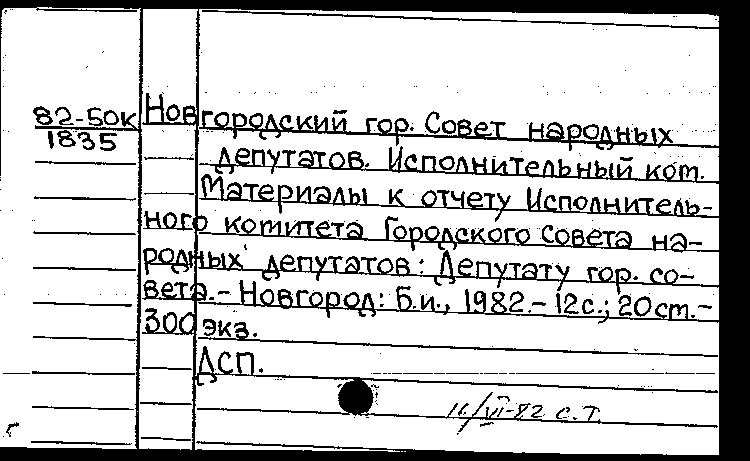 82-БОК
1835
Новгородский гор. Совет народных
депутатов. Исполнительный ком.
Материалы к отчету Исполнитель-
ного комитета Городского Совета на-
родных депутатов: Депутату гор. со-
вета.- Новгород: Б.и., 1982.- 12с.; 20ст.-
300 экз.
ДСП.
16/VI-82 с.т.